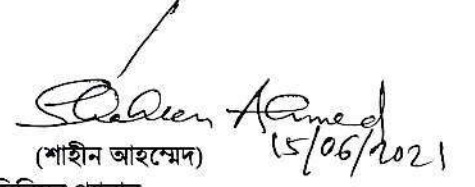 Shaheen Ahmed
15/06/2021
(শাহীন আহম্মেদ)